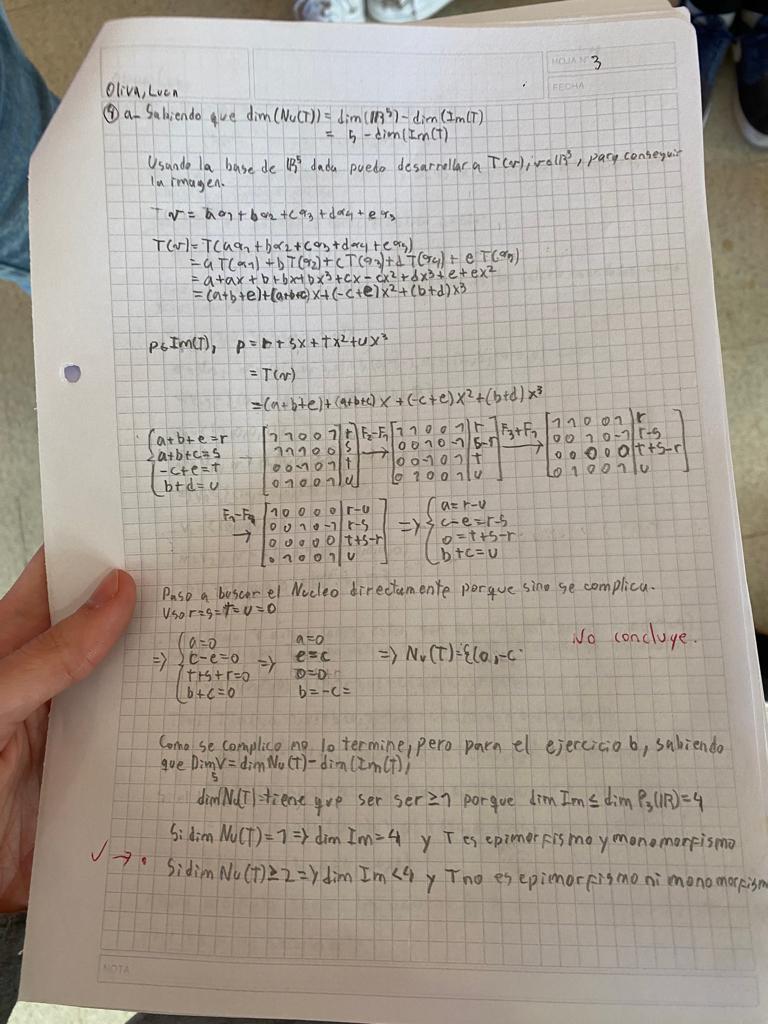 HOJA N° 3
FECHA
Oliva, Luca
④ a- Sabiendo que dim(Nu(T)) = dim(ℝ⁵) - dim(Im(T)
= 5 - dim(Im(T)
Usando la base de ℝ⁵ dada puedo desarrollar a T(v), v∈ℝ⁵, para conseguir
la imagen.
v = aα₁ + bα₂ + cα₃ + dα₄ + eα₅
T(v) = T(aα₁ + bα₂ + cα₃ + dα₄ + eα₅)
= aT(α₁) + bT(α₂) + cT(α₃) + dT(α₄) + eT(α₅)
= a + ax + b + bx + bx³ + cx - cx² + dx³ + e + ex²
= (a+b+e) + (a+b+c)x + (-c+e)x² + (b+d)x³
p∈Im(T), p = r + sx + tx² + ux³
= T(v)
= (a+b+e) + (a+b+c)x + (-c+e)x² + (b+d)x³
{a+b+e=r [1 1 0 0 1|r] F₂-F₁ [1 1 0 0 1|r] F₃+F₂ [1 1 0 0 1|r]
{a+b+c=s [1 1 1 0 0|s] → [0 0 1 0 -1|s-r] → [0 0 1 0 -1|r-s]
{-c+e=t [0 0 -1 0 1|t] [0 0 -1 0 1|t] [0 0 0 0 0|t+s-r]
{b+d=u [0 1 0 0 1|u] [0 1 0 0 1|u] [0 1 0 0 1|u]
F₁-F₄ [1 0 0 0 0|r-u] {a=r-u
→ [0 0 1 0 -1|r-s] ⇒ {c-e=r-s
[0 0 0 0 0|t+s-r] {0=t+s-r
[0 1 0 0 1|u] {b+c=u
Paso a buscar el Nucleo directamente porque sino se complica.
Uso r=s=t=u=0
No concluye.
{a=0 a=0
⇒ {c-e=0 ⇒ e=c ⇒ Nu(T)={(0,-c
{t+s+r=0 0=0
{b+c=0 b=-c=
Como se complico no lo termine, pero para el ejercicio b, sabiendo
que DimV = dimNu(T) - dim(Im(T),
5
dim(Nu(T) tiene que ser ser ≥1 porque dim Im ≤ dim P₃(ℝ)=4
Si dim Nu(T)=1 ⇒ dim Im=4 y T es epimorfismo y monomorfismo
✓ → • Si dim Nu(T)≥2 ⇒ dim Im <4 y T no es epimorfismo ni monomorfism
NOTA